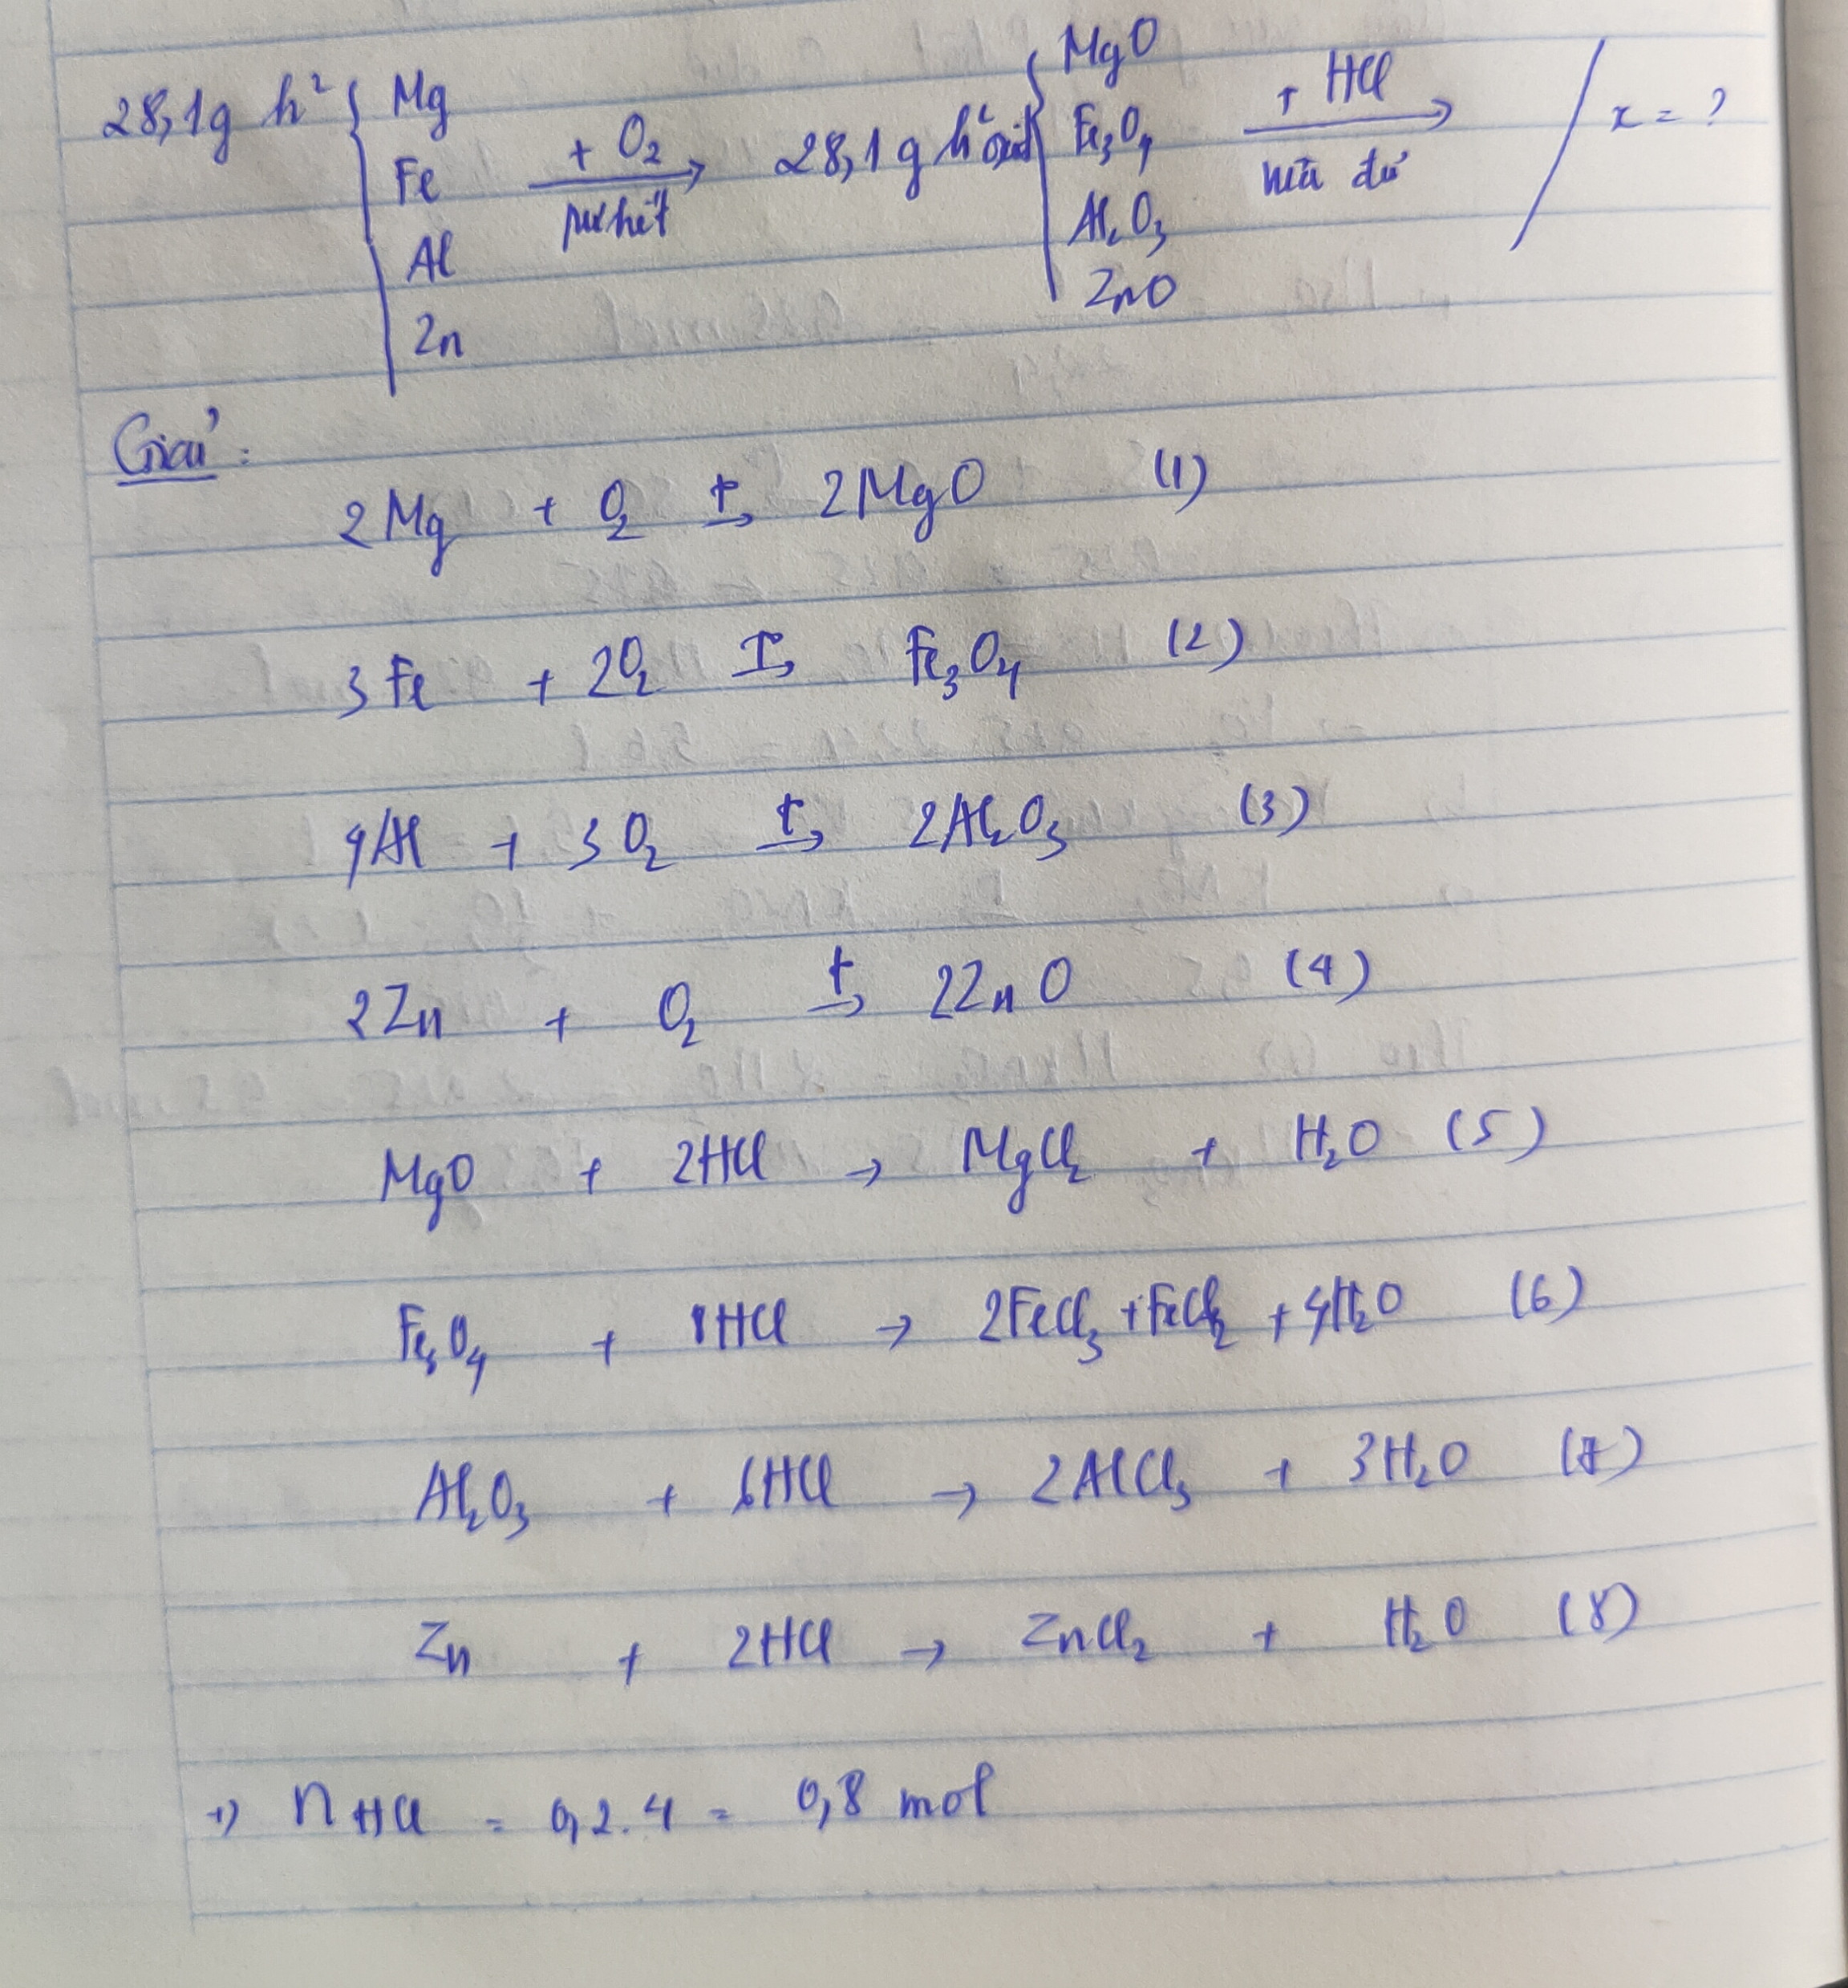 28,1g h² { Mg Fe Al Zn + O₂ → pư hết 28,1 g h² oxit { MgO Fe₃O₄ Al₂O₃ ZnO + HCl → vừa đủ / x = ?
Giải:
2Mg + O₂ t→ 2MgO (1)
3Fe + 2O₂ t→ Fe₃O₄ (2)
4Al + 3O₂ t→ 2Al₂O₃ (3)
2Zn + O₂ t→ 2ZnO (4)
MgO + 2HCl → MgCl₂ + H₂O (5)
Fe₃O₄ + 8HCl → 2FeCl₃ + FeCl₂ + 4H₂O (6)
Al₂O₃ + 6HCl → 2AlCl₃ + 3H₂O (7)
Zn + 2HCl → ZnCl₂ + H₂O (8)
+) n HCl = 0,2.4 = 0,8 mol